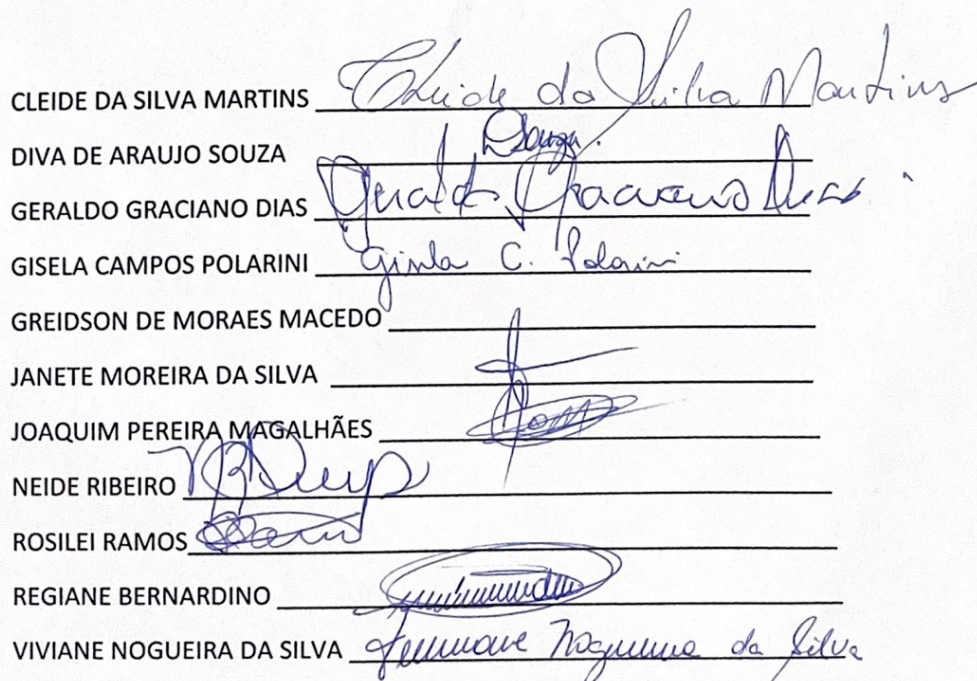 CLEIDE DA SILVA MARTINS Cleide da Silva Martins
DIVA DE ARAUJO SOUZA DSouza.
GERALDO GRACIANO DIAS Geraldo Graciano Dias
GISELA CAMPOS POLARINI Gisela C. Polarini
GREIDSON DE MORAES MACEDO
JANETE MOREIRA DA SILVA
JOAQUIM PEREIRA MAGALHÃES
NEIDE RIBEIRO
ROSILEI RAMOS
REGIANE BERNARDINO
VIVIANE NOGUEIRA DA SILVA Nogueira da Silva